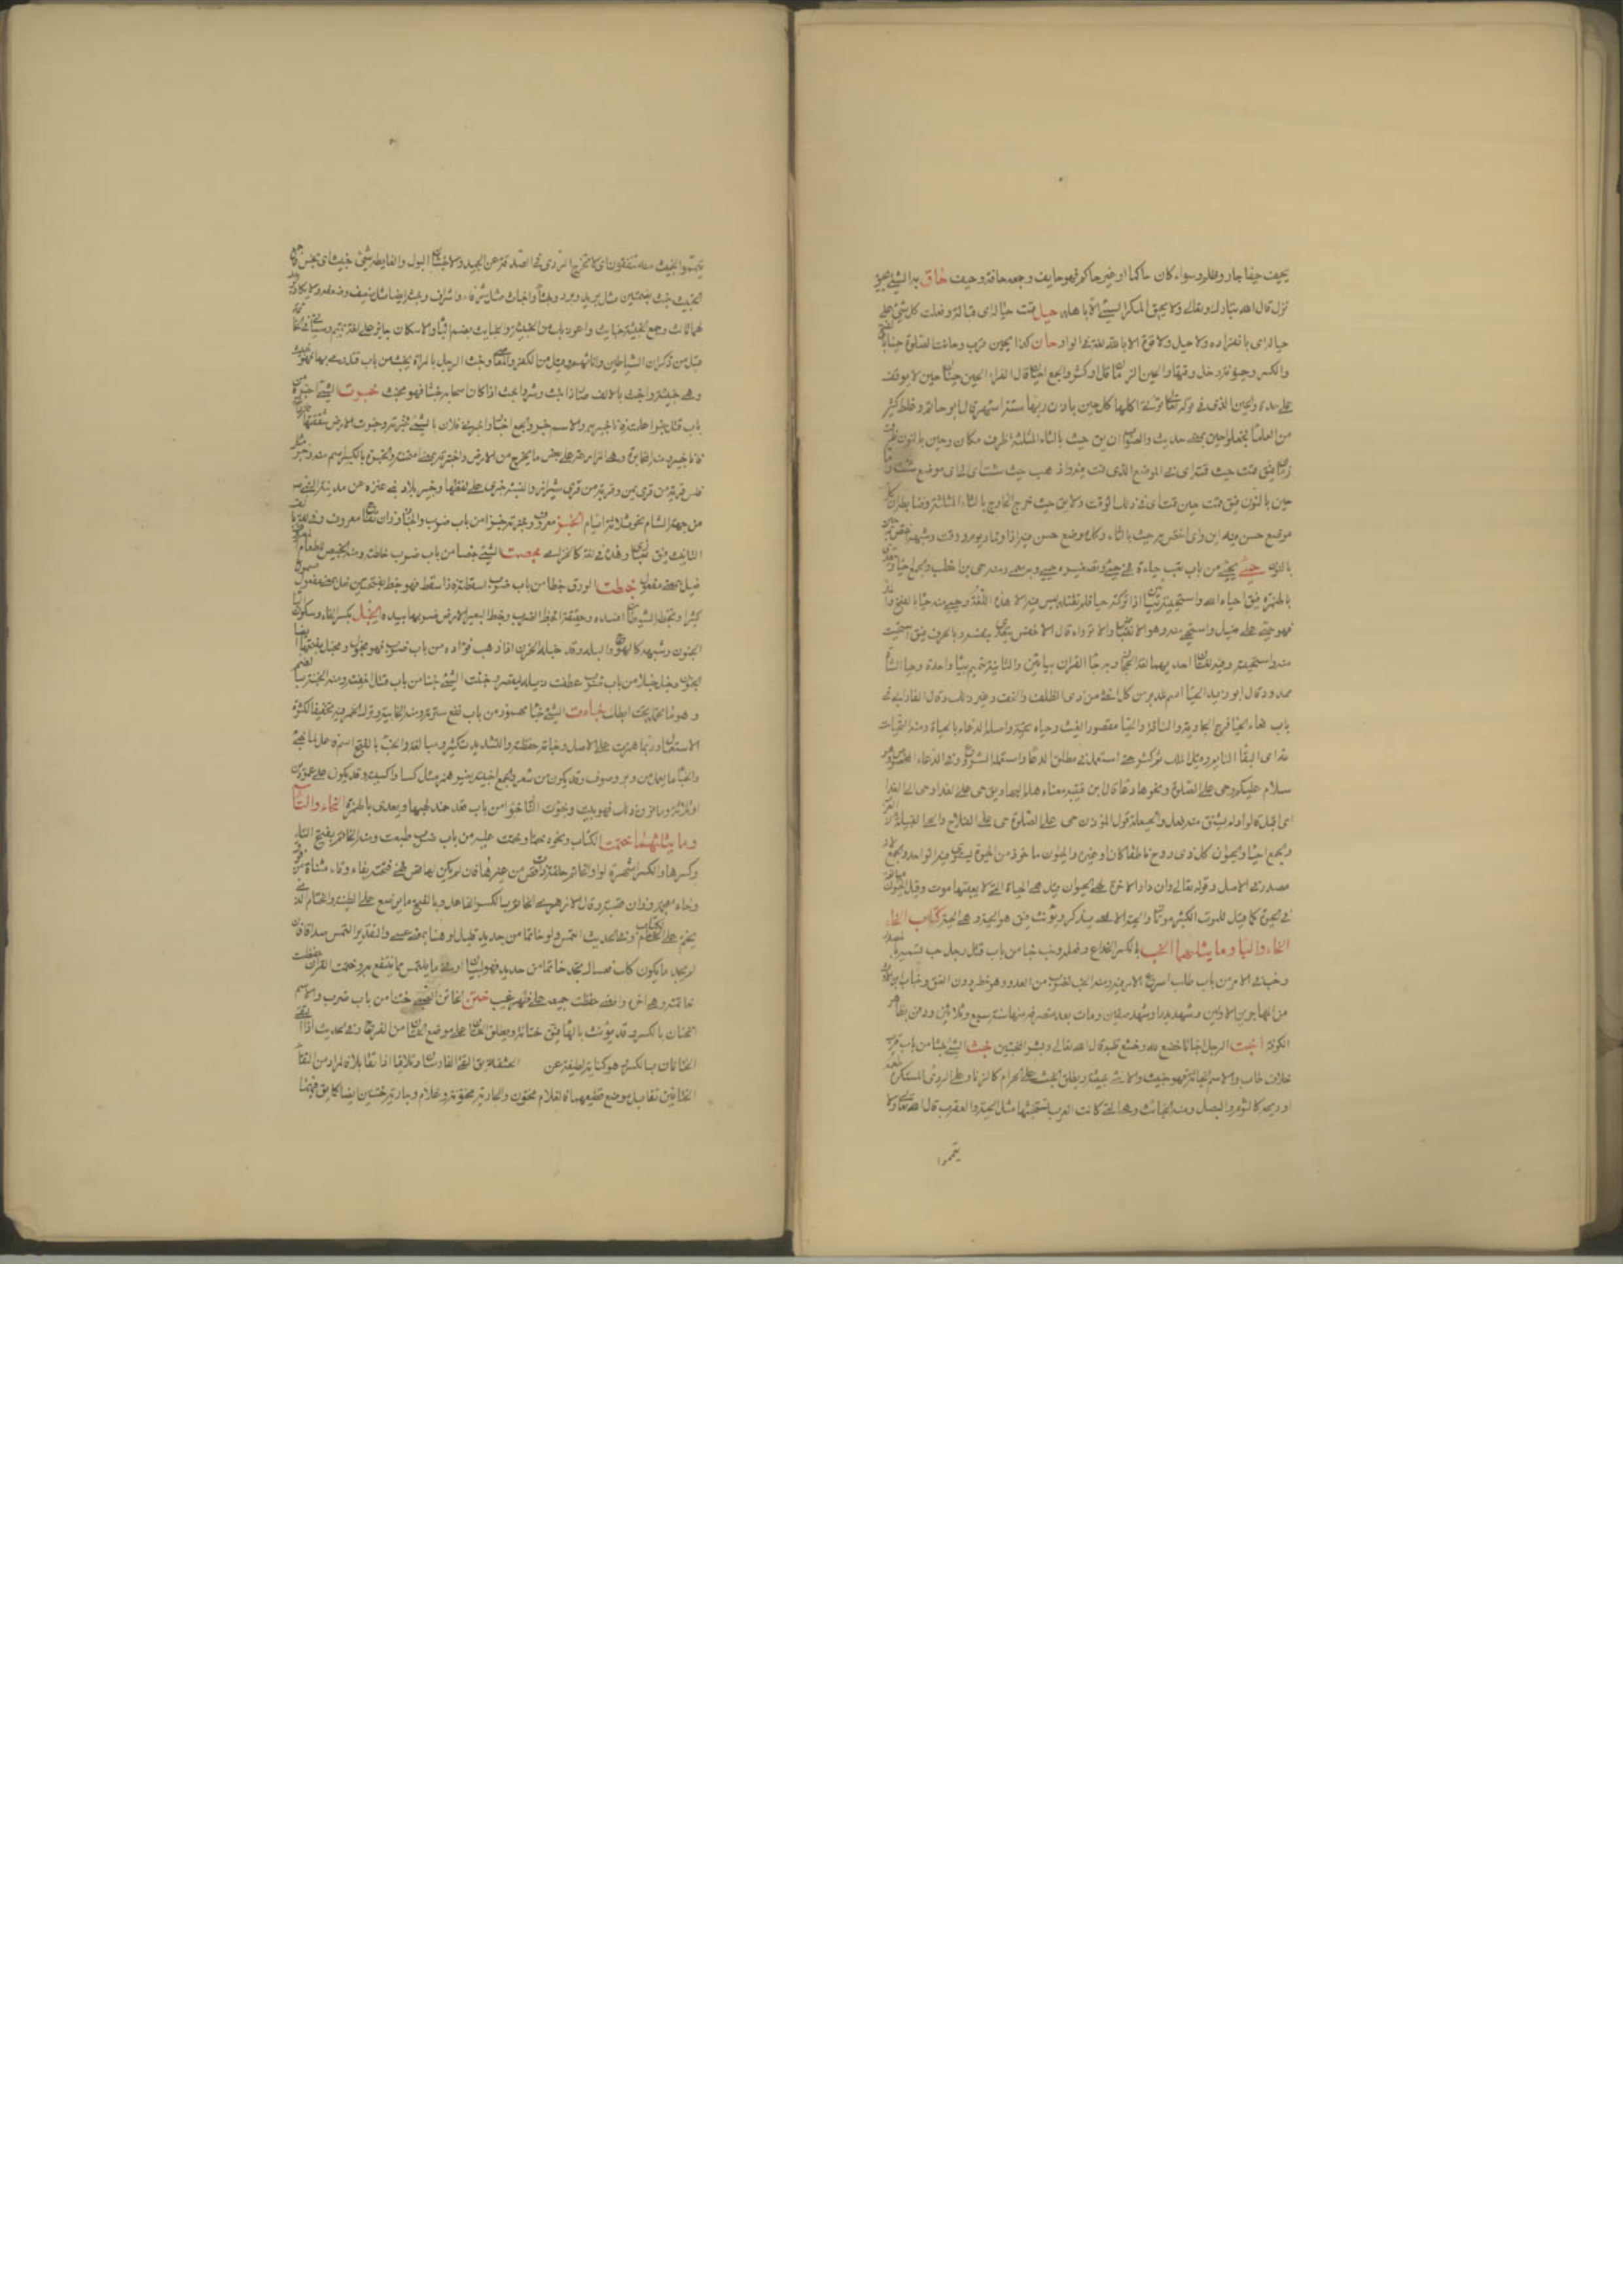 يحيف حيفا جار وظلم وسواء كان حاكما او غير حاكم فهو حايف وجمعه حافة وحيف حاق به الشيء يحيق
نزل قال الله تبارك وتعالى ولا يحيق المكر السيئ الا باهله حيل قمت حياله اى قبالته وفعلت كل شيء على
حياله اى بانفراده ولا حيل ولا قوة الا بالله لغة فى الواو حان كذا يحين قرب وحانت الصلوة حينا بالفتح
والكسر وحينونة دخل وقتها والحين الزمان قل او كثر والجمع احيان قال الفراء الحين حينان حين لا يوقف
على حده والحين الذى فى قوله تعالى تؤتى اكلها كل حين باذن ربها ستة اشهر قال ابو حاتم وغلط كثير
من العلماء فجعلوا حين بمعنى حديث والصواب ان يق حيث بالثاء المثلثة ظرف مكان وحين بالنون ظرف
زمان فيق قمت حيث قمت اى فى الموضع الذى قمت فيه واذهب حيث شئت اى الى اى موضع شئت واما
حين بالنون فيق قمت حين قمت اى فى ذلك الوقت ولا يق حيث خرج الخارج بالثاء المثلثة وضابطه ان كل
موضع حسن فيه اين واى اختص به حيث بالثاء وكل موضع حسن فيه اذا ولما ويوم ووقت وشبهه اختص به حين
بالنون حيى يحيى من باب تعب حياة فهو حى وتصغيره حيى وبه سمى ومنه حيى بن اخطب والجمع احياء ويتعدى
بالهمزة فيق احياه الله واستحييته بيائين اذا تركته حيا فلم تقتله ليس فيه الا هذه اللغة وحيى منه حياء بالفتح والمد
فهو حيى على فعيل واستحيى منه وهو الانقباض والانزواء قال الاخفش يتعدى بنفسه وبالحرف فيق استحييت
منه واستحييته وفيه لغتان احديهما لغة الحجاز وبها جاء القران بيائين والثانية لتميم بياء واحدة وحياء الشاة
ممدود قال ابو زيد الحياء اسم للدبر من كل انثى من ذى الظلف والخف وغير ذلك وقال الفارابى فى
باب فعاء الحياء فرج الجارية والناقة والحيا مقصور الغيث وحياه تحية واصله الدعاء بالحياة ومنه التحيات
لله اى البقاء وقيل الملك ثم كثر حتى استعمل فى مطلق الدعاء واستعمله الشرع فى الدعاء المخصوص وهو
سلام عليكم وحى على الصلوة ونحوها دعاء قال ابن قتيبة معناه هلم اليها ويق حى على الغداء وحى الى الغداء
اى اقبل قالوا ولم يشتق منه فعل والحيعلة قول المؤذن حى على الصلوة حى على الفلاح والحى القبيلة من العرب
والجمع احياء والحيوان كل ذى روح ناطقا كان او غيره والحيوان ماخوذ من الحيوة يستوى فيه الواحد والجمع لانه
مصدر فى الاصل وقوله تعالى وان الدار الاخرة لهى الحيوان قيل هى الحياة التى لا يعقبها موت وقيل الحيوان مبالغة
فى الحيوة كما قيل للموت الكثير موتان والحية الافعى يذكر ويؤنث فيق هو الحية وهى الحية كتاب الخاء
الخاء والباء وما يثلثهما الخب بالكسر الخداع وفعله وخب خبا من باب قتل رجل خب تسمية بالمصدر
وخب فى الامر من باب طلب اسرع الاخذ فيه ومنه الخبب لضرب من العدو وهو خطو دون العنق وخباب ابن الارت
من المهاجرين الاولين وشهد بدرا وشهد صفين ومات بعد منصرفه منها سنة سبع وثلاثين ودفن بظاهر
الكوفة اخبت الرجل اخباتا خضع لله وخشع قلبه قال الله تعالى وبشر المخبتين خبث الشيء خبثا من باب قرب
خلاف طاب والاسم الخباثة فهو خبيث والانثى خبيثة ويطلق الخبيث على الحرام كالزنا وعلى الردئ المستكره طعمه
او ريحه كالثوم والبصل ومنه الخبائث وهى التى كانت العرب تستخبثها مثل الحية والعقرب قال الله تعالى ولا
تيمموا
تيمموا الخبيث منه تنفقون اى لا تخرجوا الردى فى الصدقة عن الجيد والاخبثان البول والغايط وشىء خبيث اى نجس وجمع
الخبيث خبث بضمتين مثل بريد وبرد وخبثاء واخباث مثل شرفاء واشراف وخبثة ايضا مثل ضعيف وضعفة ولا يكاد يوجد
لهما ثالث وجمع الخبيثة خبايث واعوذ بك من الخبث والخبايث بضم الباء والاسكان جايز على لغة تميم
قيل من ذكران الشياطين واناثهم وقيل من الكفر والمعاصى وخبث الرجل بالمراة يخبث من باب قتل زنى بها فهو خبيث
وهى خبيثة واخبث بالالف صار ذا خبث وشر واخبث اذا كان اصحابه خبثا فهو مخبث خبرت الشيء اخبره من
باب قتل خبرا علمته فانا خبير به والاسم الخبر والجمع اخبار واخبرنى فلان بالشيء فخبرته وخبرت الارض شققتها للزراعة
فانا خبير ومنه المخابرة وهى المزارعة على بعض ما يخرج من الارض واختبرته بمعنى امتحنته والخبرة بالكسر اسم منه وخبر مثل
فلس قرية من قرى يمن وقرية من قرى شيراز والنسبة خبرى على لفظها وخيبر بلاد بنى عنزة عن مدينة النبى ص
من جهة الشام نحو ثلاثة ايام الخبز معروف وخبزته خبزا من باب ضرب والخباز وزان تفاح معروف وفى لغة بالف
التانيث فيق خبازى وهذه فى لغة كالخزامى خبصت الشيء خبصا من باب ضرب خلطته ومنه الخبيص للطعام المعروف
فعيل بمعنى مفعول خبطت الورق خبطا من باب ضرب اسقطته فاذا سقط فهو خبط بفتحتين فعل بمعنى مفعول مسموع
كثيرا وتخبطه الشيطان افسده وحقيقة الخبط الضرب وخبط البعير الارض ضربها بيده الخبل بكسر الخاء وسكون الباء
الجنون وشبهه كالهوج والبله وقد خبله الحزن اذا ذهب فؤاده من باب ضرب فهو مخبول ومخبل والخبل بفتحها ايضا
الجنون وخبل خبلا من باب تعب خبنت الشيء خبنا من باب قتل اخفيته ومنه الخبنة بالضم
وهو ما تحمله تحت ابطك خبأت الشيء خبأ مهموز من باب نفع سترته ومنه الخابية وترك الهمز فيه تخفيفا لكثرة
الاستعمال وربما همزت على الاصل وخباته حفظته والتشديد تكثير ومبالغة والخبء بالفتح اسم لما خبئ
والخباء ما يعمل من وبر وصوف وقد يكون من شعر والجمع اخبية بغير همز مثل كساء واكسية وقد يكون على عمودين
او ثلاثة وما فوق ذلك فهو بيت وخبت النار خبوا من باب قعد خمد لهبها ويعدى بالهمزة الخاء والتاء
وما يثلثهما ختمت الكتاب ونحوه ختما وختمت عليه من باب ضرب طبعت ومنه الخاتم بفتح التاء
وكسرها والكسر اشهر قالوا الخاتم حلقة ذات فص من غيرها فان لم يكن لها فص فهى فتخة بفاء وتاء مثناة من فوق
وخاء معجمة وزان قصبة وقال الازهرى الخاتم بالكسر الفاعل وبالفتح ما يوضع على الطينة والختام الذى
يختم على الكتاب وفى الحديث التمس ولو خاتما من حديد قيل لو هنا بمعنى عسى والتقدير التمس صداقا فان
لم يجد ما يكون كذلك فعساك تجد خاتما من حديد فهو لبيان ادنى ما يلتمس مما ينتفع به وختمت القران حفظت
خاتمته وهى اخره والمعنى حفظت جميعه على ظهر غيب ختن الخاتن الصبى ختنا من باب ضرب والاسم
الختان بالكسر وقد يؤنث بالهاء فيق ختانة ويطلق الختان على موضع القطع من الفرج وفى الحديث اذا التقى
الختانان بالكسر هو كناية لطيفة عن الحشفة يق التقى الفارسان وتلاقيا اذا تقابلا فالمراد من التقاء
الختانين تقابل موضع قطعهما فالغلام مختون والجارية مختونة وغلام وجارية ختين ايضا كما يق فيهما